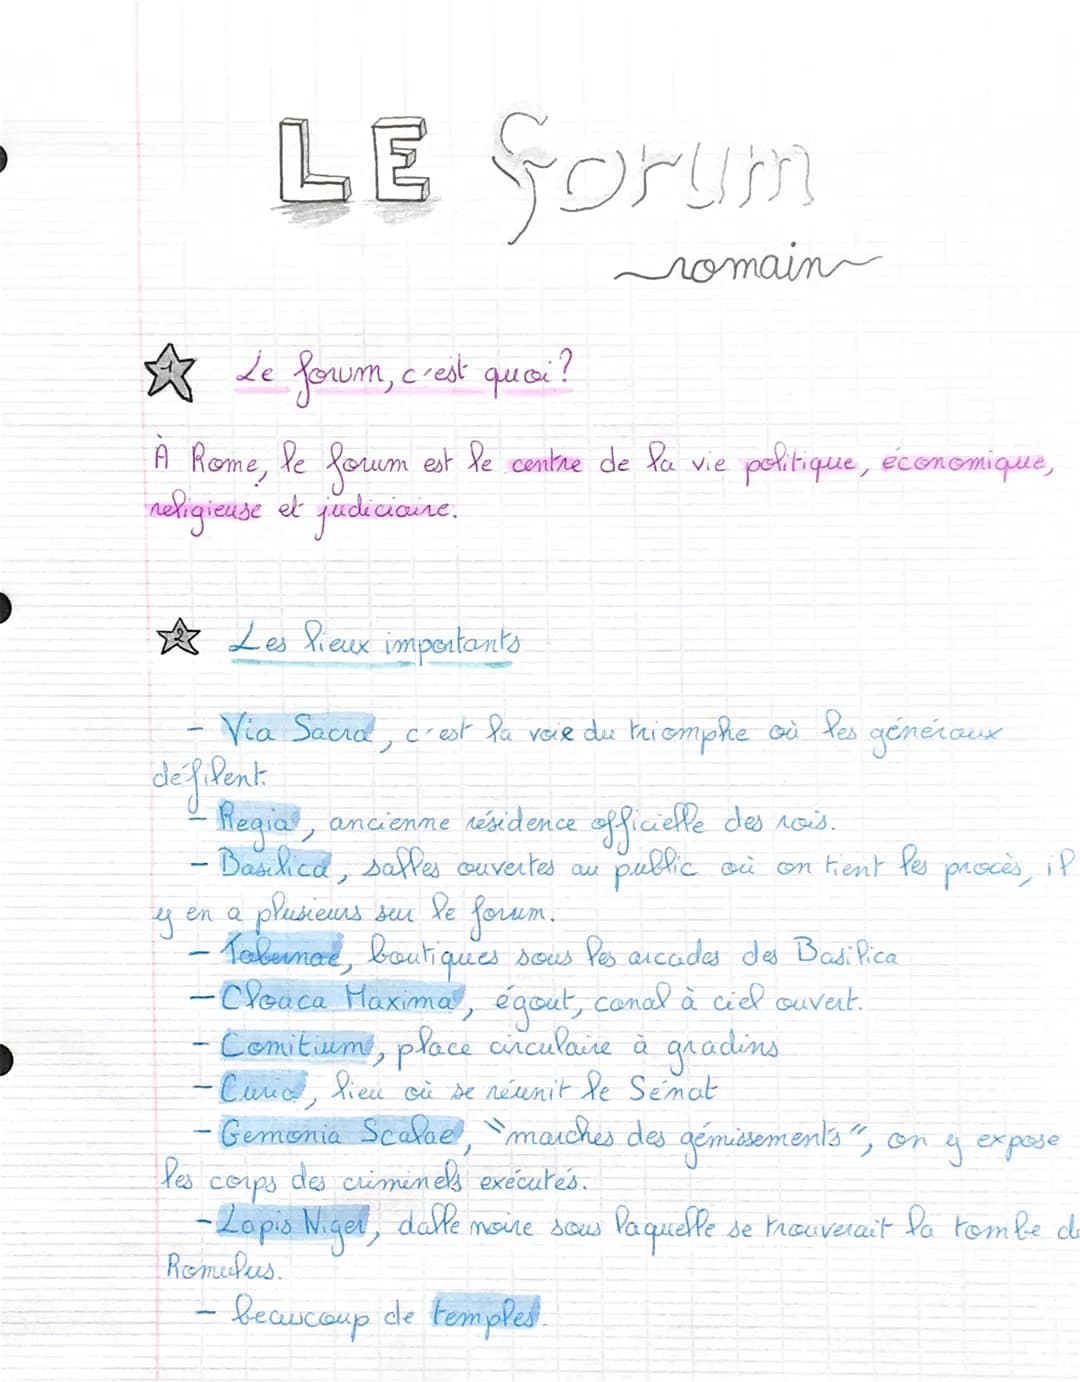 LE forum
romain
1 Le forum, c'est quoi?
À Rome, le forum est le centre de la vie politique, économique,
religieuse et judiciaire.
2 Les lieux importants
- Via Sacra, c'est la voie du triomphe où les généraux
défilent.
- Regia, ancienne résidence officielle des rois.
- Basilica, salles ouvertes au public où on tient les procès, il
y en a plusieurs sur le forum.
- Tabernae, boutiques sous les arcades des Basilica
- Cloaca Maxima, égout, canal à ciel ouvert.
- Comitium, place circulaire à gradins
- Curia, lieu où se réunit le Sénat
- Gemonia Scalae, "marches des gémissements", on y expose
les corps des criminels exécutés.
- Lapis Niger, dalle noire sous laquelle se trouverait la tombe de
Romulus.
- beaucoup de temples.